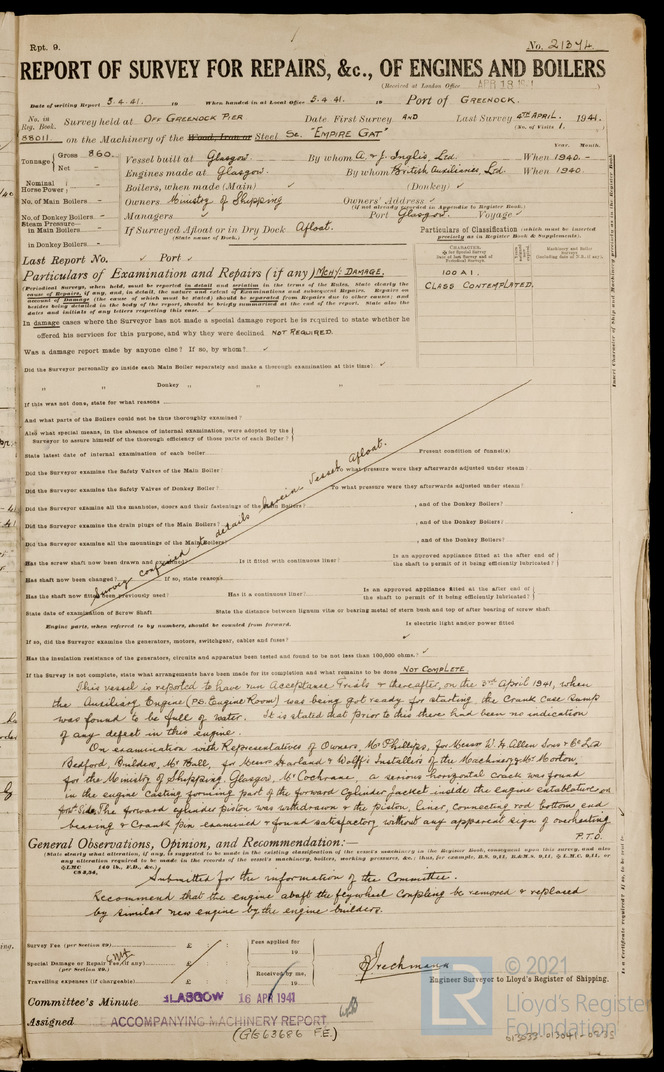 Rpt. 9.
No. 21374
REPORT OF SURVEY FOR REPAIRS, &c., OF ENGINES AND BOILERS
(Received at London Office APR 18 1941)
Date of writing Report 5.4.41. 19 When handed in at Local Office 5.4.41. 19 Port of GREENOCK.
No. in Reg. Book. Survey held at OFF GREENOCK PIER Date. First Survey AND Last Survey 4TH APRIL. 1941.
(No. of Visits 1.
88011 on the Machinery of the Wood, Iron or Steel Sc. "EMPIRE GAT"
Year. Month.
Tonnage Gross 860. Net -
Vessel built at Glasgow. By whom A. & J. Inglis, Ltd. When 1940. -
Engines made at Glasgow. By whom British Auxiliaries, Ltd. When 1940
Nominal Horse Power - Boilers, when made (Main) ✓ (Donkey) ✓
No. of Main Boilers - Owners Ministry of Shipping Owners' Address ✓
(if not already recorded in Appendix to Register Book.)
No. of Donkey Boilers - Managers ✓ Port Glasgow. Voyage ✓
Steam Pressure in Main Boilers - If Surveyed Afloat or in Dry Dock Afloat.
(State name of Dock.)
in Donkey Boilers -
Particulars of Classification (which must be inserted precisely as in Register Book & Supplements).
Last Report No. ✓ Port ✓
Particulars of Examination and Repairs (if any) MCHY: DAMAGE.
100 A 1.
CLASS CONTEMPLATED.
(Periodical Surveys, when held, must be reported in detail and seriatim in the terms of the Rules. State clearly the cause of Repairs, if any, and, in detail, the nature and extent of Examinations and subsequent Repairs. Repairs on account of Damage (the cause of which must be stated) should be separated from Repairs due to other causes; and besides being detailed in the body of the report, should be briefly summarised at the end of the report. State also the dates and initials of any letters respecting this case. ✓
In damage cases where the Surveyor has not made a special damage report he is required to state whether he
offered his services for this purpose, and why they were declined NOT REQUIRED.
Was a damage report made by anyone else? If so, by whom? ✓
Did the Surveyor personally go inside each Main Boiler separately and make a thorough examination at this time? ✓
„ „ Donkey „ „ „ „
If this was not done, state for what reasons
And what parts of the Boilers could not be thus thoroughly examined?
Also what special means, in the absence of internal examination, were adopted by the Surveyor to assure himself of the thorough efficiency of those parts of each Boiler?
State latest date of internal examination of each boiler Present condition of funnel(s)
Did the Surveyor examine the Safety Valves of the Main Boiler? To what pressure were they afterwards adjusted under steam?
Did the Surveyor examine the Safety Valves of Donkey Boiler? To what pressure were they afterwards adjusted under steam?
Did the Surveyor examine all the manholes, doors and their fastenings of the Main Boilers? , and of the Donkey Boilers?
Did the Surveyor examine the drain plugs of the Main Boilers? , and of the Donkey Boiler?
Did the Surveyor examine all the mountings of the Main Boilers? , and of the Donkey Boiler?
Survey confined to details herein. Vessel afloat.
Has the screw shaft now been drawn and examined? Is it fitted with continuous liner? Is an approved appliance fitted at the after end of the shaft to permit of it being efficiently lubricated?
Has shaft now been changed? If so, state reasons
Has the shaft now fitted been previously used? Has it a continuous liner? Is an approved appliance fitted at the after end of the shaft to permit of it being efficiently lubricated?
State date of examination of Screw Shaft State the distance between lignum vitæ or bearing metal of stern bush and top of after bearing of screw shaft
Engine parts, when referred to by numbers, should be counted from forward. Is electric light and/or power fitted
If so, did the Surveyor examine the generators, motors, switchgear, cables and fuses? ✓
Has the insulation resistance of the generators, circuits and apparatus been tested and found to be not less than 100,000 ohms? ✓
If the Survey is not complete, state what arrangements have been made for its completion and what remains to be done NOT COMPLETE.
This vessel is reported to have run Acceptance Trials & thereafter, on the 3rd April 1941, when
the Auxiliary Engine (P.S. Engine Room) was being got ready for starting the Crank Case Sump
was found to be full of water. It is stated that prior to this there had been no indication
of any defect in this engine.
On examination with Representatives of Owners, Mr Phillips, for Messrs W. H. Allen Sons & Co Ltd
Bedford, Builders, Mr Bull, for Messrs Harland & Wolff's Installers of the Machinery & Mr Morton,
for the Ministry of Shipping, Glasgow, Mr Cochrane, a serious horizontal crack was found
in the engine casting forming part of the forward cylinder jacket inside the engine entablature on
port side. The forward cylinder piston was withdrawn & the piston, liner, connecting rod bottom end
bearing & crank pin examined & found satisfactory without any apparent sign of overheating.
P.T.O.
General Observations, Opinion, and Recommendation:—
(State clearly what alteration, if any, is suggested to be made in the existing classification of the vessel's machinery in the Register Book, consequent upon this survey, and also any alteration required to be made in the records of the vessel's machinery, boilers, working pressures, &c.; thus, for example, B.S. 9,11, B.&M.S. 9,11, or L.M.C. 9,11, or
140 lb., F.D., &c.)
Submitted for the information of the Committee.
Recommend that the engine abaft the flywheel coupling be removed & replaced
by similar new engine by the engine builders.
Survey Fee (per Section 29) £ : : Fees applied for 19
Special Damage or Repair Fee (if any) (per Section 29.) £
Travelling expenses (if chargeable) £ : : Received by me, 19
Engineer Surveyor to Lloyd's Register of Shipping.
Committee's Minute GLASGOW 16 APR 1941
Assigned SEE ACCOMPANYING MACHINERY REPORT
(GE63686 F.E.)
LR
© 2021
Lloyd's Register
Foundation
013033-013041-0235